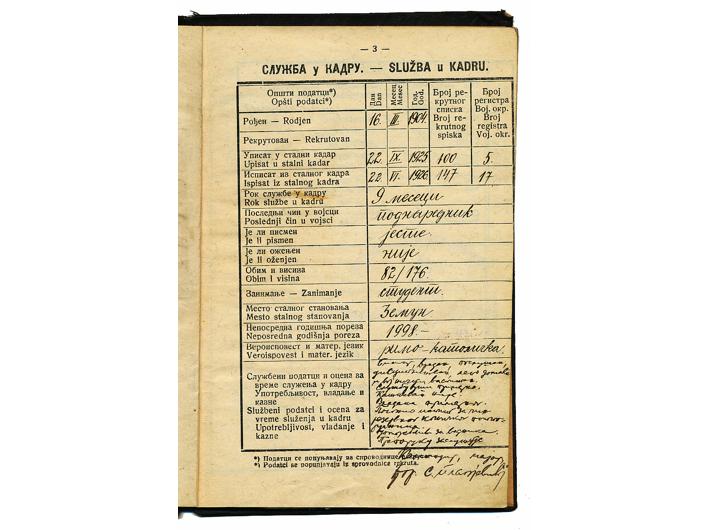 — 3 —
СЛУЖБА у КАДРУ. — SLUŽBA u KADRU.
Општи податци*)
Opšti podatci*)
Дан
Dan
Месец
Mesec
Год.
God.
Број ре-
крутног
списка
Broj re-
krutnog
spiska
Број
регистра
Вој. окр.
Broj
registra
Voj. okr.
Рођен — Rodjen 16. III. 1904.
Рекрутован — Rekrutovan
Уписат у стални кадар
Upisat u stalni kadar 22. IX. 1925 100 5.
Исписат из сталног кадра
Ispisat iz stalnog kadra 22. VI. 1926 147 17
Рок службе у кадру
Rok službe u kadru 9 месеци
Последњи чин у војсци
Poslednji čin u vojsci поднаредник
Је ли писмен
Je li pismen јесте.
Је ли ожењен
Je li oženjen није
Обим и висина
Obim i visina 82/176.
Занимање — Zanimanje студент.
Место сталног становања
Mesto stalnog stanovanja Земун
Непосредна годишња пореза
Neposredna godišnja poreza 1998.-
Вероисповест и матер. језик
Veroispovest i mater. jezik римо-католичка.
Службени податци и оцена за
време служења у кадру
Употребљивост, владање и
казне
Službeni podatci i ocena za
vreme služenja u kadru
Upotrebljivost, vladanje i
kazne
*) Податци се попуњавају из спроводнице
*) Podatci se popunjavaju iz sprovodnice rekruta.